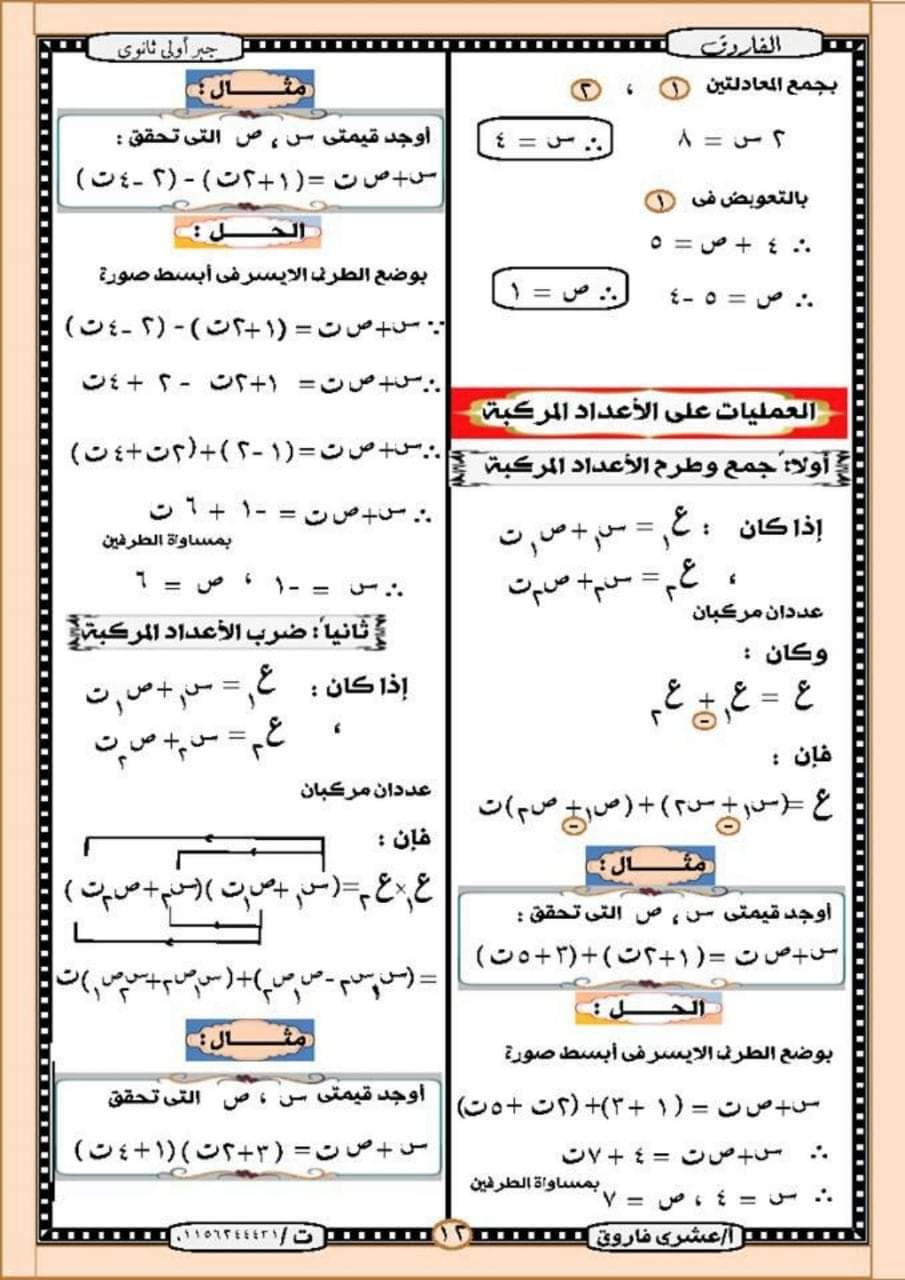 الفاروق
جبر أولى ثانوى
بجمع المعادلتين ١ ، ٢
٢ س = ٨ ∴ س = ٤
بالتعويض فى ١
∴ ٤ + ص = ٥
∴ ص = ٥ -٤ ∴ ص = ١
العمليات على الأعداد المركبة
أولاً: جمع وطرح الأعداد المركبة
إذا كان : ع١ = س١ + ص١ ت
، ع٢ = س٢ + ص٢ ت
عددان مركبان
وكان :
ع = ع١ + ع٢
-
فإن :
ع =(س١ + س٢)+(ص١ + ص٢)ت
- -
مثـــال :
أوجد قيمتى س ، ص التى تحقق :
س+ص ت =(١+٢ت)+(٣+٥ت)
الحـــل :
بوضع الطرف الايسر فى أبسط صورة
س+ص ت = (١ +٣)+(٢ت +٥ت)
∴ س+ص ت = ٤ +٧ت
بمساواة الطرفين
∴ س = ٤ ، ص = ٧
مثـــال :
أوجد قيمتى س ، ص التى تحقق :
س+ص ت =(١+٢ت)-(٢-٤ت)
الحـــل :
بوضع الطرف الايسر فى أبسط صورة
∵ س+ص ت = (١+٢ت)-(٢-٤ت)
∴س+ص ت = ١+٢ت - ٢ + ٤ت
∴س+ص ت =(١-٢)+(٢ت+٤ت)
∴ س+ص ت = -١ + ٦ ت
بمساواة الطرفين
∴ س = -١ ، ص = ٦
ثانياً: ضرب الأعداد المركبة
إذا كان : ع١ = س١ + ص١ ت
، ع٢ = س٢ + ص٢ ت
عددان مركبان
فإن :
ع١×ع٢=(س١+ص١ت)(س٢+ص٢ت)
=(س١س٢-ص١ص٢)+(س١ص٢+س٢ص١)ت
مثـــال :
أوجد قيمتى س ، ص التى تحقق
س+ص ت =(٣+٢ت)(١+٤ت)
أ/عشرى فاروق
١٢
ت /٠١١٥٦٢٤٤٤٢١